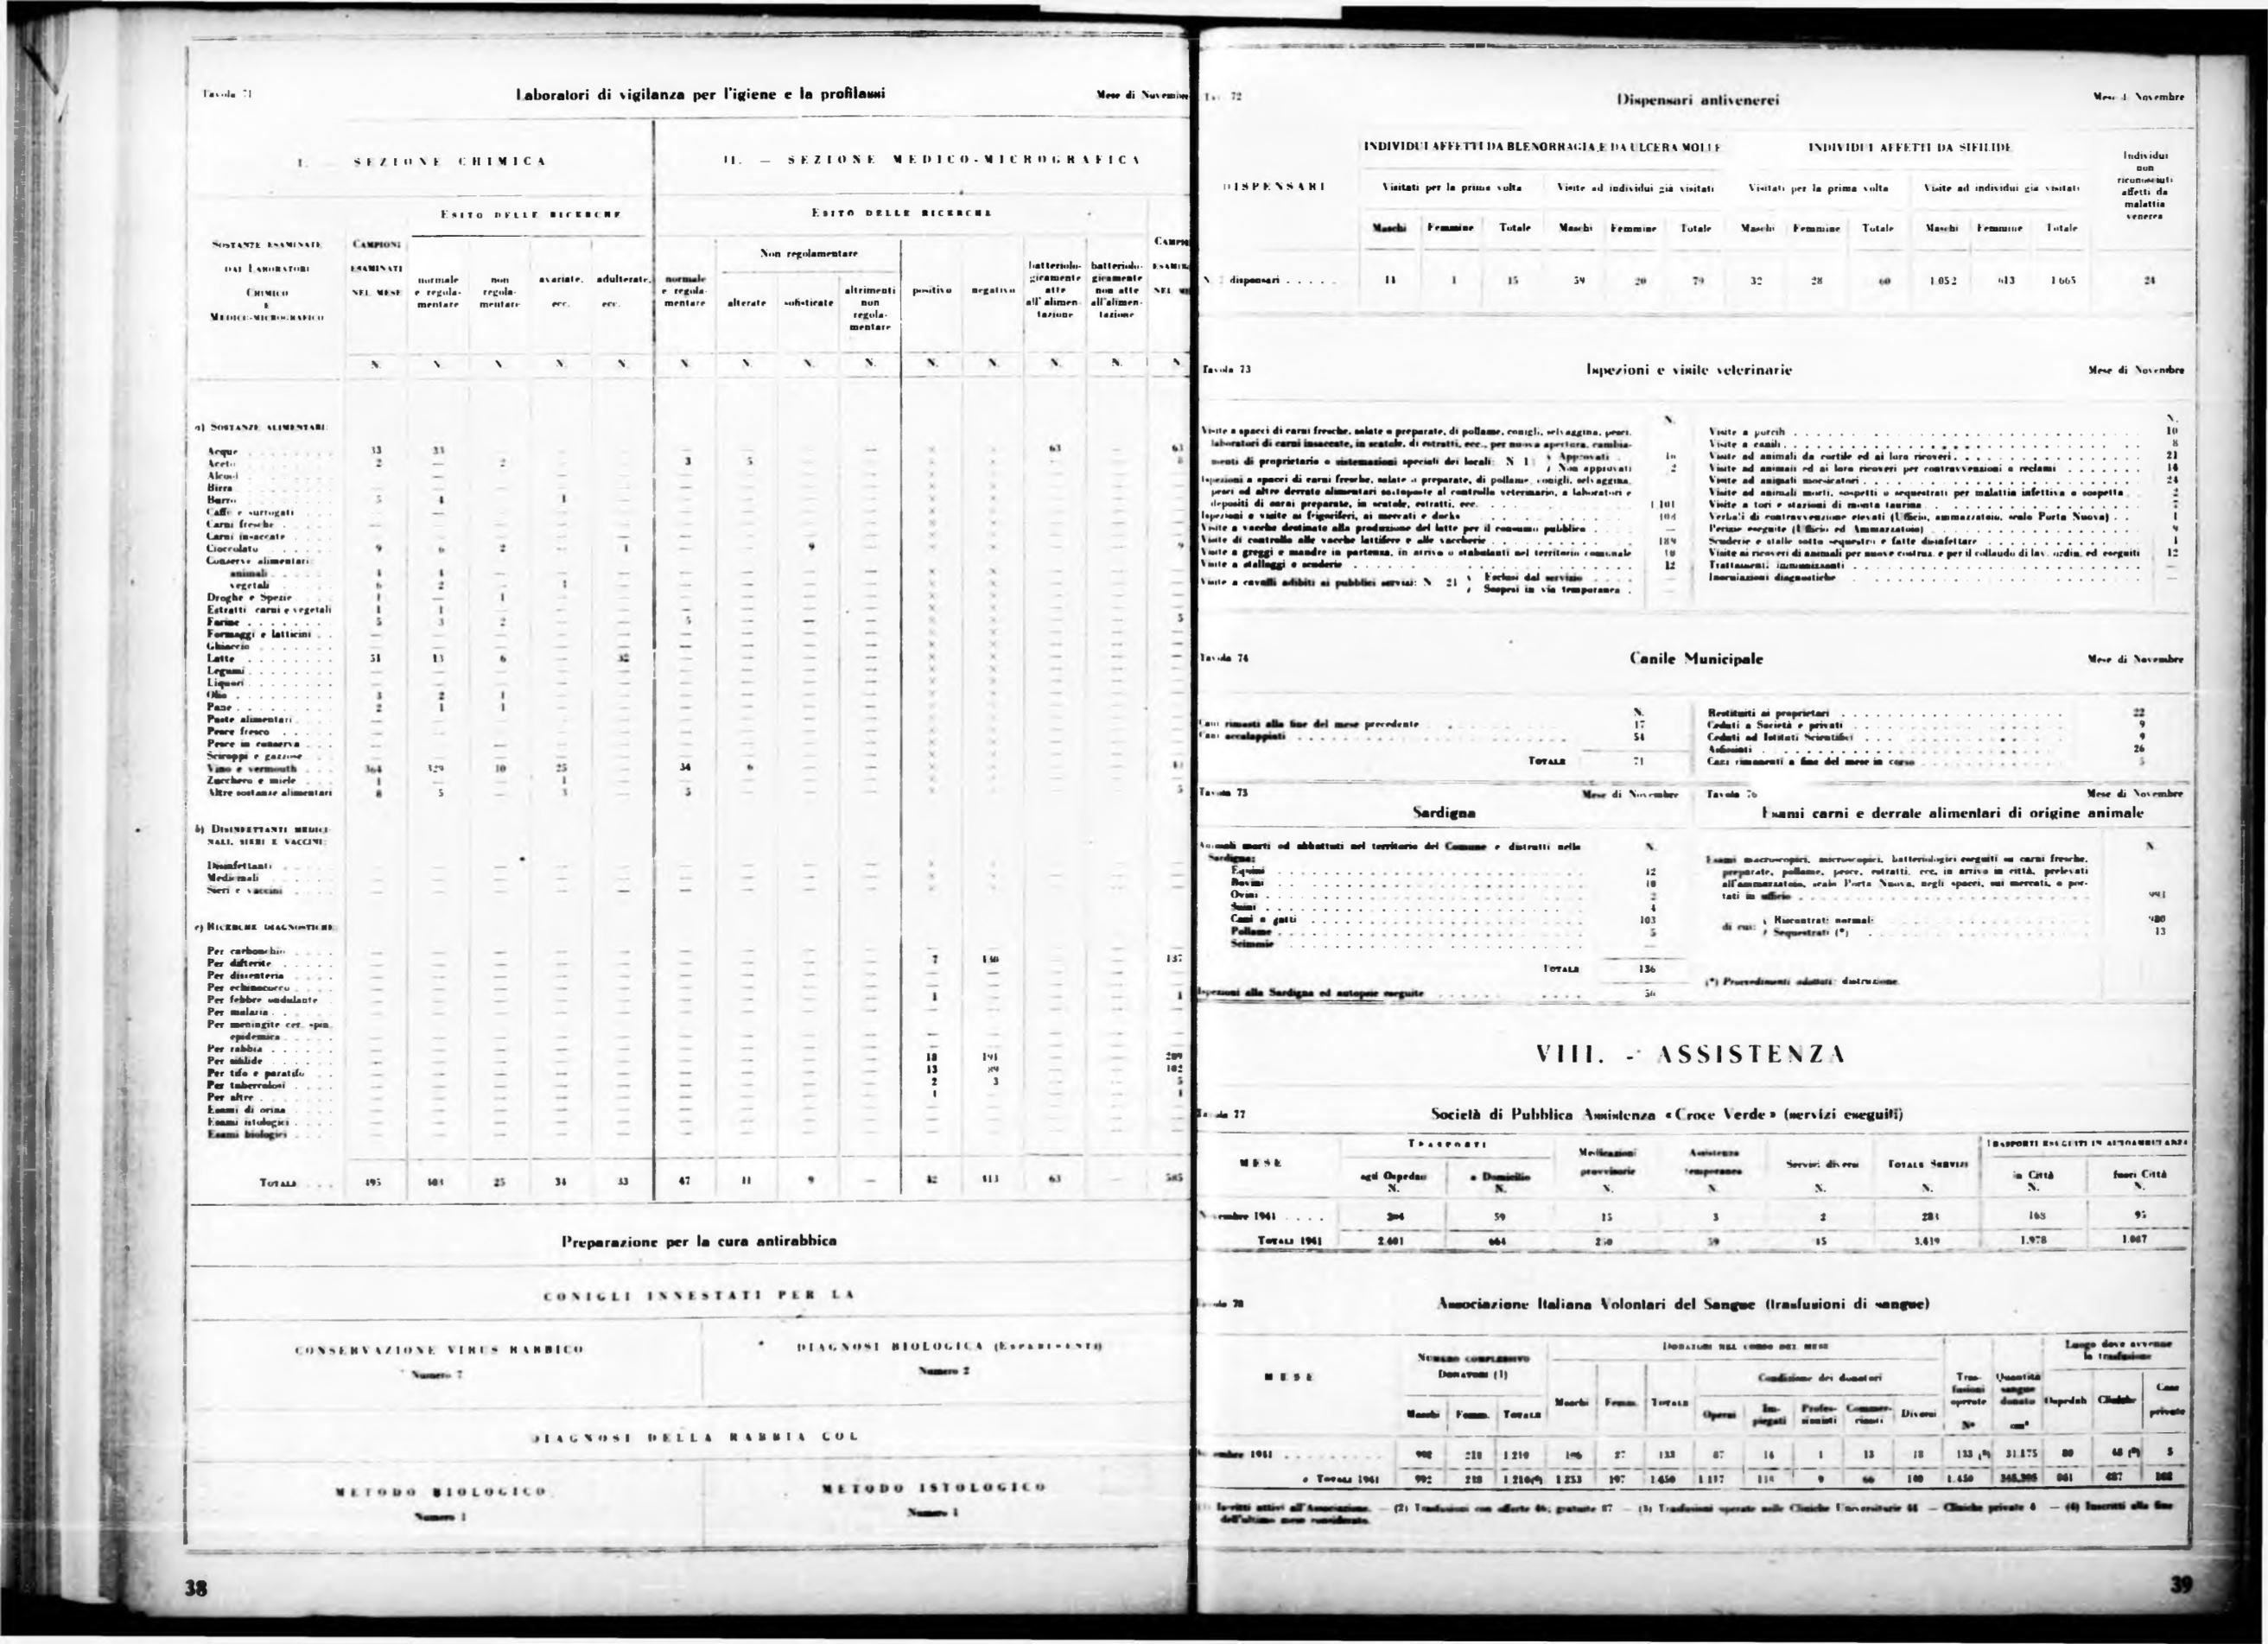 Tavola 71
Laboratori di vigilanza per l'igiene e la profilassi
Mese di Novembre
I. SEZIONE CHIMICA
II. — SEZIONE MEDICO-MICROGRAFICA
ESITO DELLE RICERCHE
ESITO DELLE RICERCHE
SOSTANZE ESAMINATE
DAI LABORATORI
CHIMICO
E
MEDICO-MICROGRAFICO
CAMPIONI
ESAMINATI
NEL MESE
normale
e regola-
mentare
non
regola-
mentare
avariate,
ecc.
adulterate,
ecc.
normale
e regola-
mentare
Non regolamentare
alterate
sofisticate
altrimenti
non
regola-
mentare
positivo
negativo
batteriolo-
gicamente
atte
all'alimen-
tazione
batteriolo-
gicamente
non atte
all'alimen-
tazione
N. N. N. N. N. N. N. N. N. N. N. N. N. N.
a) SOSTANZE ALIMENTARI:
Acque 33 33 63 63
Aceto 2 — 2 3 5
Alcool
Birra
Burro 5 4 1
Caffè e surrogati
Carni fresche
Carni insaccate
Cioccolato 9 6 2 — 1 9 9
Conserve alimentari:
animali 4 4
vegetali 6 2
Droghe e Spezie 1 — 1
Estratti carni e vegetali 1 1
Farine 5 3 2 5 5
Formaggi e latticini
Ghiaccio
Latte 51 13 6 — 32
Legumi
Liquori
Olio 3 2 1
Pane 2 1 1
Paste alimentari
Pesce fresco
Pesce in conserva
Sciroppi e gazzose
Vino e vermouth 364 329 10 25 34 6
Zucchero e miele 1 — — 1
Altre sostanze alimentari 8 5 — 3 5 5
b) DISINFETTANTI MEDICI-
NALI, SIERI E VACCINI:
Disinfettanti
Medicinali
Sieri e vaccini
c) RICERCHE DIAGNOSTICHE:
Per carbonchio
Per difterite 7 130 137
Per dissenteria
Per echinococco
Per febbre ondulante 1 — 1
Per malaria
Per meningite cer. spin.
epidemica
Per rabbia
Per sifilide 18 191 209
Per tifo e paratifo 13 89 102
Per tubercolosi 2 3 5
Per altre 1 — 1
Esami di orina
Esami istologici
Esami biologici
TOTALE 495 403 25 34 33 47 11 9 — 42 413 63 — 585
Preparazione per la cura antirabbica
CONIGLI INNESTATI PER LA
CONSERVAZIONE VIRUS RABBICO
Numero 7
DIAGNOSI BIOLOGICA (ESPERIMENTI)
Numero 2
DIAGNOSI DELLA RABBIA COL
METODO BIOLOGICO
Numero 1
METODO ISTOLOGICO
Numero 1
38
72
Dispensari antivenerei
Mese di Novembre
DISPENSARI
INDIVIDUI AFFETTI DA BLENORRAGIA E DA ULCERA MOLLE
INDIVIDUI AFFETTI DA SIFILIDE
Individui
non
riconosciuti
affetti da
malattia
venerea
Visitati per la prima volta
Visite ad individui già visitati
Visitati per la prima volta
Visite ad individui già visitati
Maschi Femmine Totale Maschi Femmine Totale Maschi Femmine Totale Maschi Femmine Totale
dispensari 14 1 15 59 20 79 32 28 60 1.052 613 1.665 24
Tavola 73
Ispezioni e visite veterinarie
Mese di Novembre
Visite a spacci di carni fresche, salate o preparate, di pollame, conigli, selvaggina, pesci,
laboratori di carni insaccate, in scatole, di estratti, ecc., per nuova apertura, cambia-
menti di proprietario o sistemazioni speciali dei locali: Approvati
Non approvati 2
Ispezioni a spacci di carni fresche, salate o preparate, di pollame, conigli, selvaggina,
pesci ed altre derrate alimentari sottoposte al controllo veterinario, a laboratori e
depositi di carni preparate, in scatole, estratti, ecc. 1.101
Ispezioni e visite ai frigoriferi, ai mercati e docks
Visite a vacche destinate alla produzione del latte per il consumo pubblico —
Visite di controllo alle vacche lattifere e alle vaccherie 189
Visite a greggi e mandre in partenza, in arrivo o stabulanti nel territorio comunale 10
Visite a stallaggi e scuderie 12
Visite a cavalli adibiti ai pubblici servizi: N. 21 Esclusi dal servizio —
Sospesi in via temporanea —
Visite a porcili 10
Visite a canili 8
Visite ad animali da cortile ed ai loro ricoveri 21
Visite ad animali ed ai loro ricoveri per contravvenzioni o reclami 14
Visite ad animali morsicatori 24
Visite ad animali morti, sospetti o sequestrati per malattia infettiva o sospetta 2
Visite a tori e stazioni di monta taurina
Verbali di contravvenzione elevati (Ufficio, ammazzatoio, scalo Porta Nuova) 1
Perizie eseguite (Ufficio ed Ammazzatoio) 9
Scuderie e stalle sotto sequestro e fatte disinfettare 1
Visite ai ricoveri di animali per nuove costruz. e per il collaudo di lav. ordin. ed eseguiti 12
Trattamenti immunizzanti —
Inoculazioni diagnostiche —
Tavola 74
Canile Municipale
Mese di Novembre
N.
Cani rimasti alla fine del mese precedente 17
Cani accalappiati 54
TOTALE 71
Restituiti ai proprietari 22
Ceduti a Società e privati 9
Ceduti ad Istituti Scientifici 9
Asfissiati 26
Cani rimanenti a fine del mese in corso 5
Tavola 75
Mese di Novembre
Sardigna
Animali morti od abbattuti nel territorio del Comune e distrutti nella
Sardigna:
Equini 12
Bovini 10
Ovini 2
Suini 4
Cani e gatti 103
Pollame 5
Scimmie —
TOTALE 136
Ispezioni alla Sardigna ed autopsie eseguite
Tavola 76
Mese di Novembre
Esami carni e derrate alimentari di origine animale
Esami macroscopici, microscopici, batteriologici eseguiti su carni fresche,
preparate, pollame, pesce, estratti, ecc. in arrivo in città, prelevati
all'ammazzatoio, scalo Porta Nuova, negli spacci, sui mercati, o por-
tati in ufficio 993
di cui: Riscontrati normali 980
Sequestrati (*) 13
(*) Provvedimenti adottati: distruzione.
VIII. - ASSISTENZA
Tavola 77
Società di Pubblica Assistenza «Croce Verde» (servizi eseguiti)
MESE
TRASPORTI
agli Ospedali N.
a Domicilio N.
Medicazioni provvisorie N.
Assistenza temporanea N.
Servizi diversi N.
TOTALE SERVIZI N.
TRASPORTI ESEGUITI IN AUTOAMBULANZA
in Città N.
fuori Città N.
Novembre 1941 204 59 15 3 2 283 168 95
TOTALI 1941 2.601 664 59 15 1.978 1.087
Tavola 78
Associazione Italiana Volontari del Sangue (trasfusioni di sangue)
MESE
NUMERO COMPLESSIVO
DONATORI (1)
DONATORI NEL CORSO DEL MESE
Condizione dei donatori
Maschi Femm. TOTALE Maschi Femm. TOTALE
Operai
Im-
piegati
Profes-
sionisti
Commer-
cianti
Diversi
Tras-
fusioni
operate
N°
Quantità
sangue
donato
cm³
Luogo dove avvenne
la trasfusione
Ospedali
Cliniche
Case
private
Novembre 1941 992 218 1.210 106 27 133 87 14 1 13 18 133 (²) 31.175 80 48 (³) 5
TOTALI 1941 992 218 1.210(⁴) 1.253 197 1.450 1.117 9 1.450
(1) Iscritti attivi all'Associazione. — (2) Trasfusioni con offerte 46; gratuite 87 — (3) Trasfusioni operate nelle Cliniche Universitarie 44 — Cliniche private 4 — (4) Inscritti alla fine
dell'ultimo mese considerato.
39